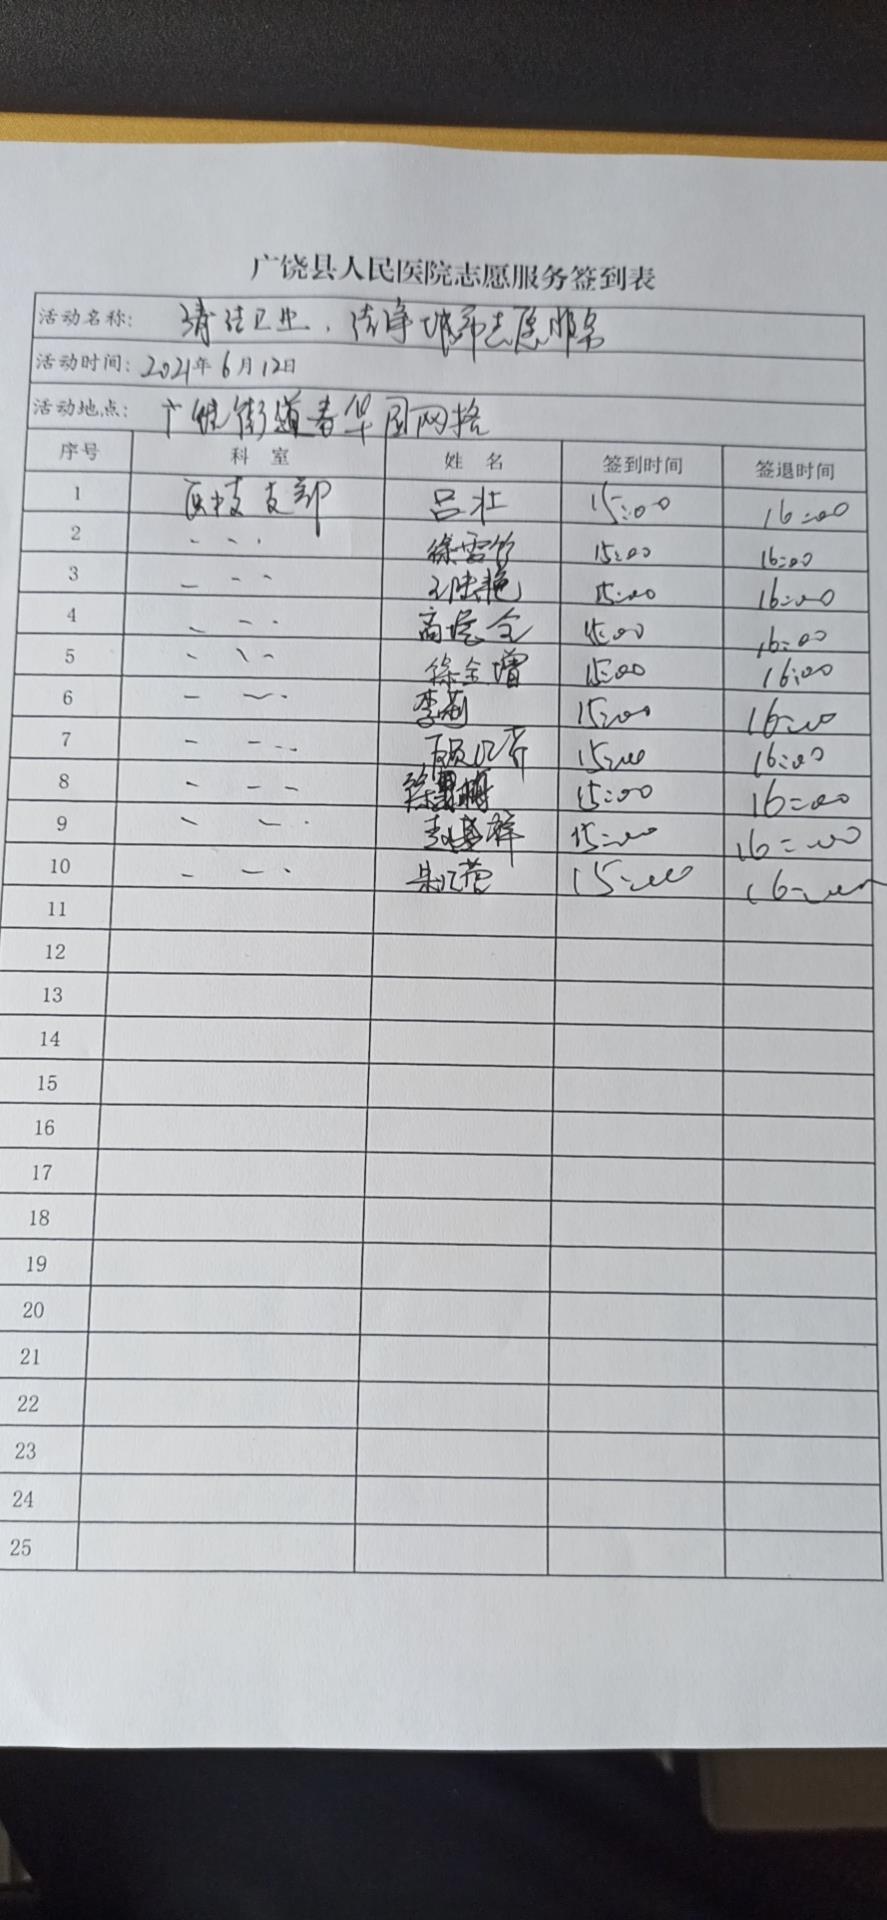 广饶县人民医院志愿服务签到表
活动名称: 清洁卫生、洁净城市志愿服务
活动时间: 2021年6月12日
活动地点: 广饶街道春华园网格
序号 科 室 姓 名 签到时间 签退时间
1 医技支部 吕壮 15:00 16:00
2 - - - 徐雪竹 15:00 16:00
3 - - - 艳 15:00 16:00
4 - - - 高 全 15:00 16:00
5 - - - 徐金增 15:00 16:00
6 - - - 李莉 15:00 16:00
7 - - - 15:00 16:00
8 - - - 徐 15:00 16:00
9 - - - 15:00 16:00
10 - - - 15:00 16:00
11
12
13
14
15
16
17
18
19
20
21
22
23
24
25